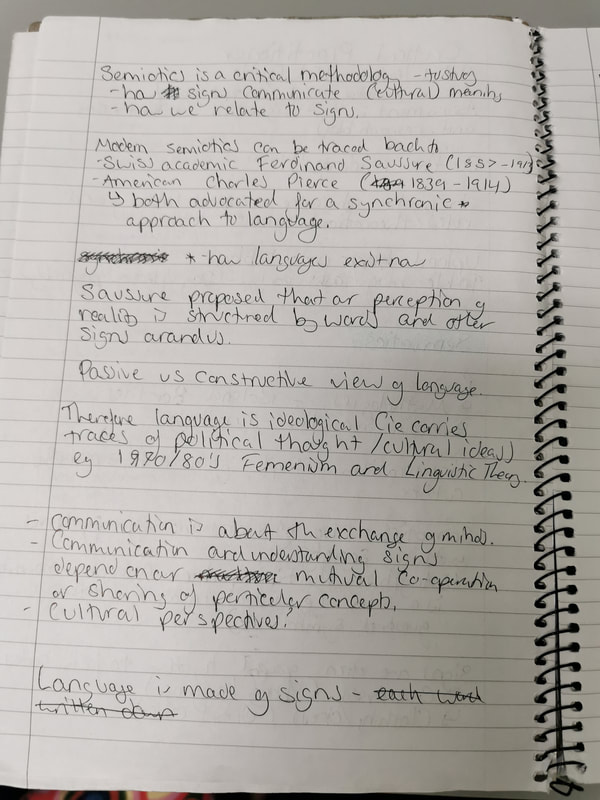 Semiotics is a critical methodology - to study
- how signs communicate (cultural) meanings
- how we relate to signs.
Modern semiotics can be traced back to
- Swiss academic Ferdinand Saussure (1857-1913)
- American Charles Pierce (1839-1914)
↳ both advocated for a synchronic *
approach to language.
* - how languages exist now
Saussure proposed that our perception of
reality is structured by words and other
signs around us.
Passive vs constructive view of language.
Therefore language is ideological (ie carries
traces of political thought / cultural ideas)
eg 1970/80's Femenism and Linguistic Theory.
- Communication is about the exchange of minds.
- Communication and understanding signs
depend on our mutual co-operation
or sharing of particular concepts.
- Cultural perspectives.
Language is made of signs - each word
written down